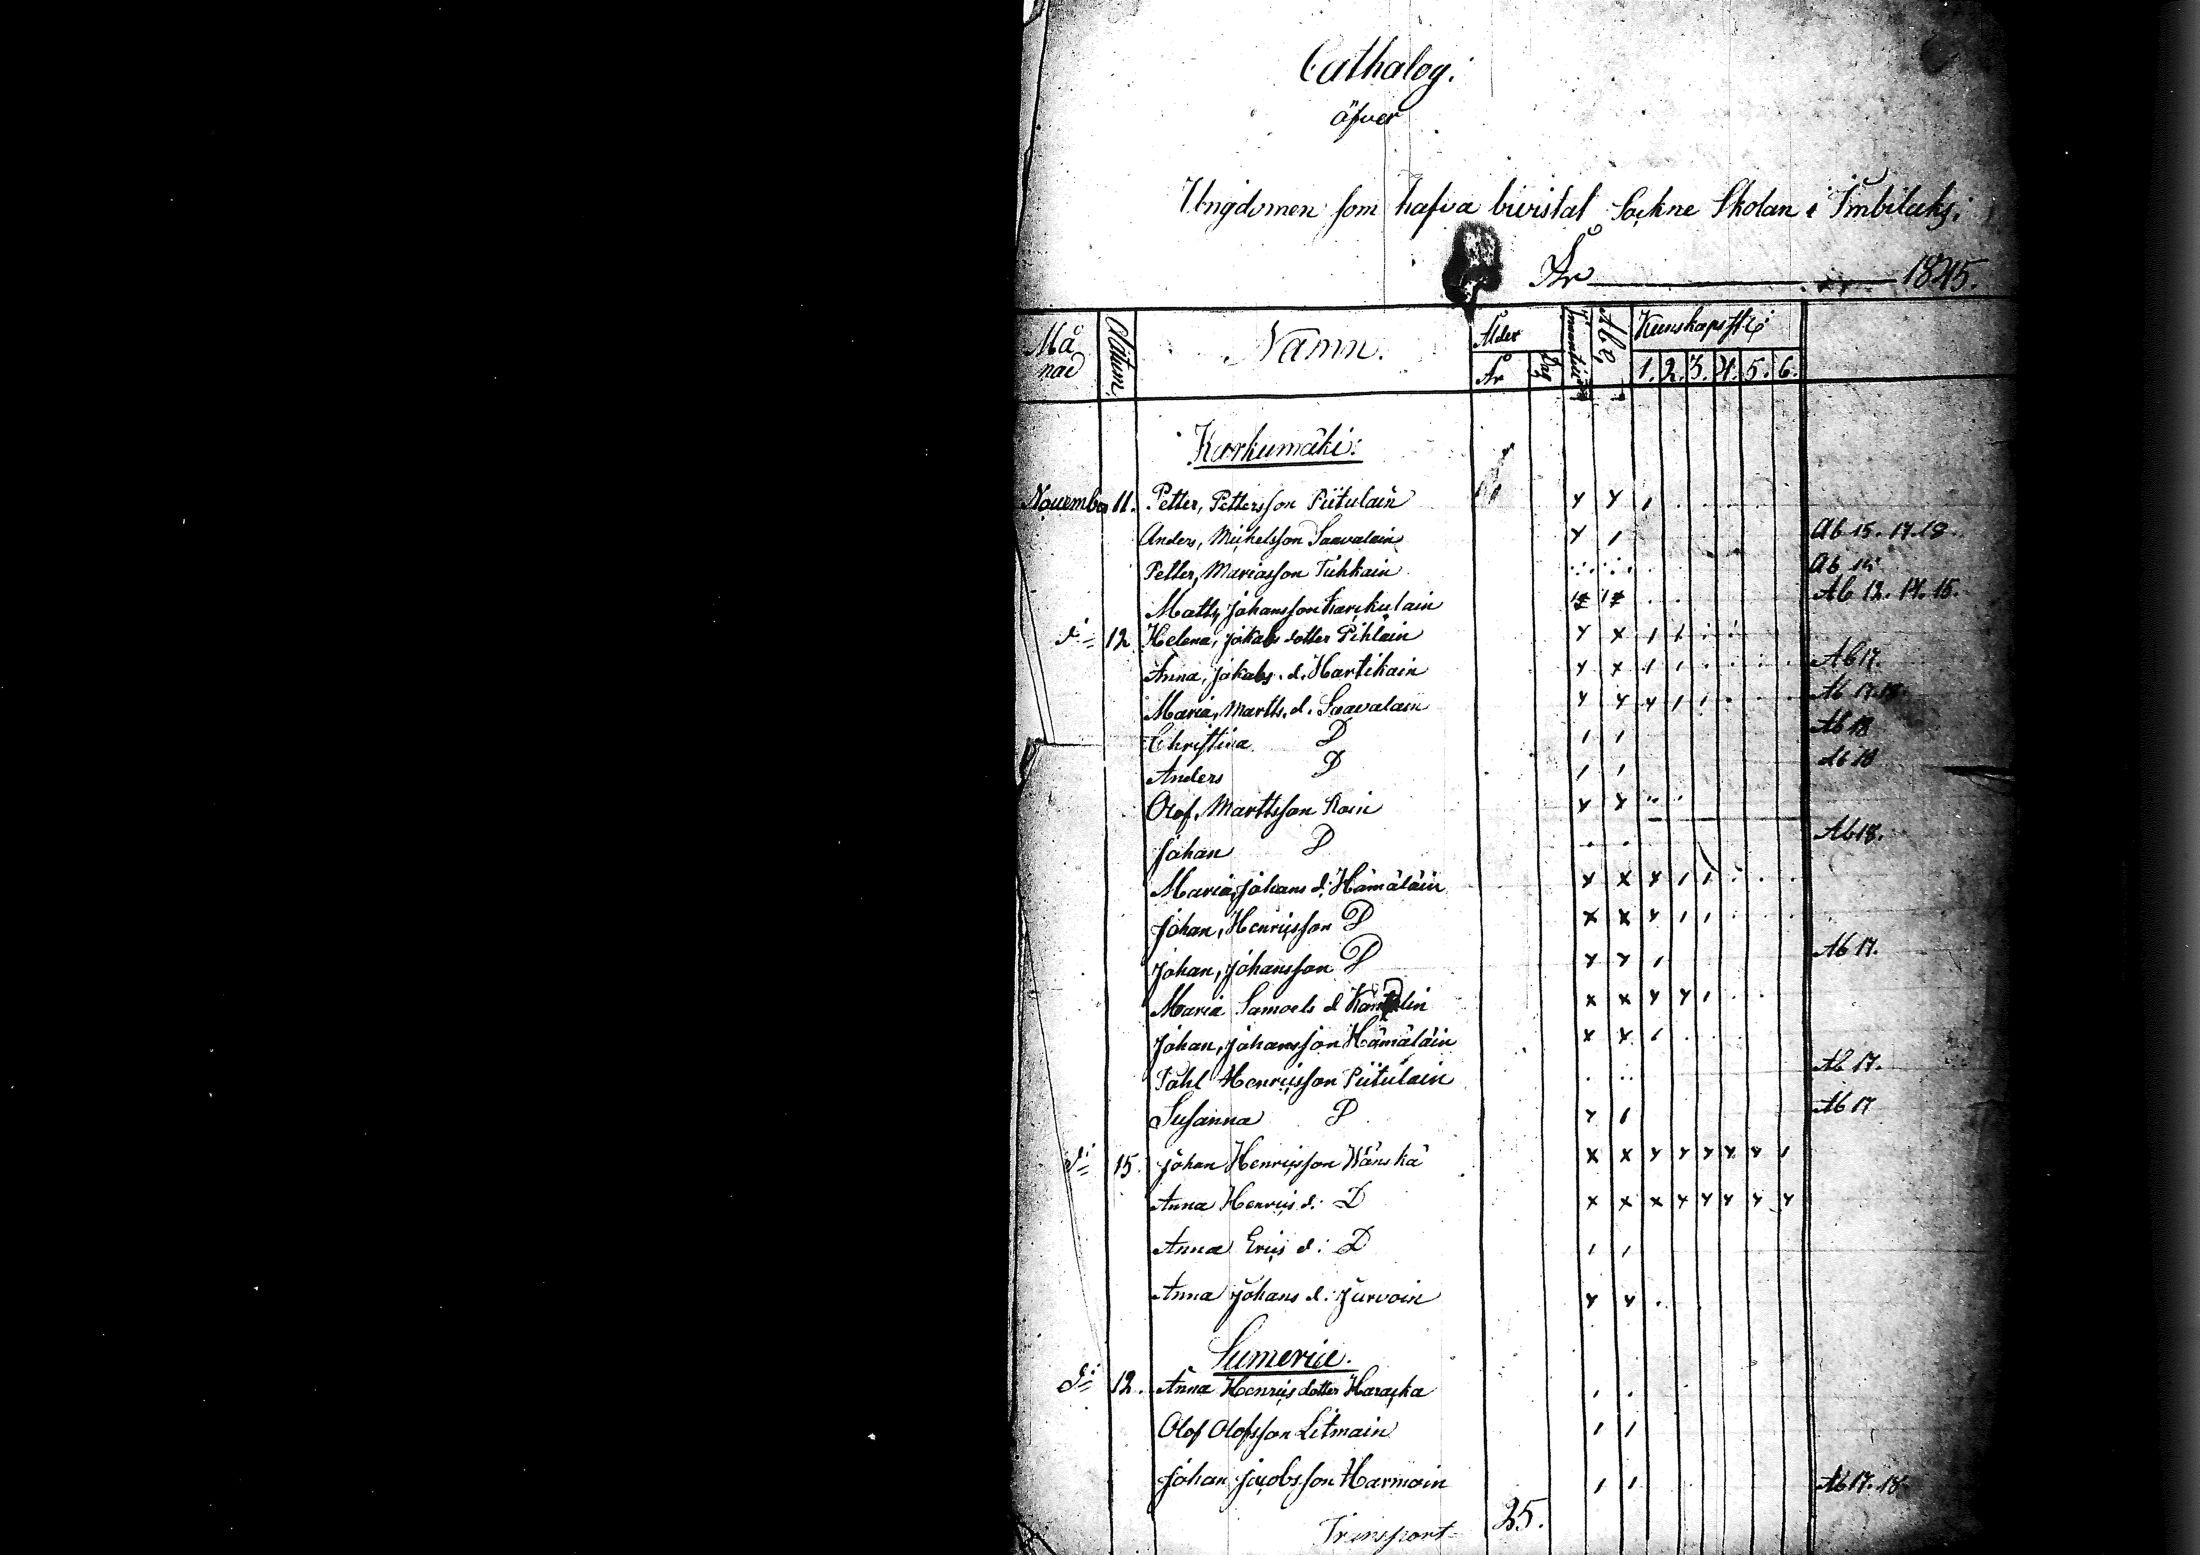 Cathalog.
öfver
Ungdomen som hafva bivistat Sockne Skolan i Imbilaks,
År 1845.
Månad Datum Namn. Ålder År Dag Innantill Abc Kunskaps 1. 2. 3. 4. 5. 6.
Karkumäki:
November 11. Petter, Pettersson Piitulain x x 1
Anders, Michelsson Saavalain x 1 Ab 15. 17. 18.
Petter, Mariasson Tuhkain Ab
Matts, Johansson Karckulain Ab 12. 14. 15.
d:o 12 Helena, Jakobs dotter Pihlain x x 1 1
Anna, Jakobs. d. Hartikain x x 1 1 Ab 17.
Maria, Martts. d. Saavalain x x x 1 1 Ab 17. 18.
Christina D 1 1 Ab 18
Anders D 1 1 Ab 18
Olof, Marttsson Roin x x
Johan D Ab 18.
Maria, Johans d: Hämäläin x x x 1 1
Johan, Henricsson D x x x 1 1
Johan, Johansson D x x 1 Ab 17.
Maria Samoels d x x x x 1
Johan, Johansson Hämäläin x x 1
Påhl Henricsson Piitulain Ab 17.
Susanna D x 1 Ab 17
d:o 15. Johan Henricsson Wänskä x x x x x x x 1
Anna Henrics d: D x x x x x x x x
Anna Erics d: D 1 1
Anna Johans d: Jurvoin x x
Sumeria.
d:o 12. Anna Henrics dotter Haracka
Olof Olofsson Litmain 1 1
Johan Jacobsson Harmoin 1 1 Ab 17. 18.
Transport 25.